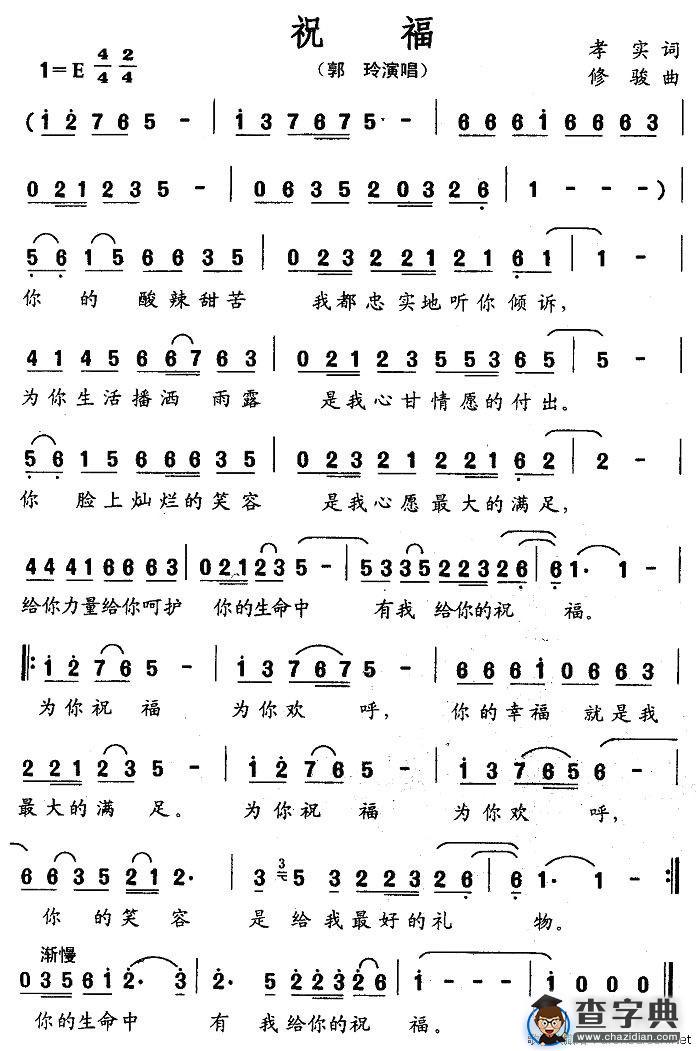 祝 福
1=E 4/4 2/4
(郭 玲演唱)
孝 实 词
修 骏 曲
(i 2 7 6 5 - | i 3 7 6 7 5 - | 6 6 6 i 6 6 6 3 |
0 2 1 2 3 5 - | 0 6 3 5 2 0 3 2 6 | 1 - - -)
5 6 1 5 6 6 6 3 5 | 0 2 3 2 2 2 1 2 6 1 | 1 -
你 的 酸辣甜苦 我都忠实地听你倾诉,
4 1 4 5 6 6 7 6 3 | 0 2 1 2 3 5 5 3 6 5 | 5 -
为你生活播洒 雨露 是我心甘情愿的付出。
5 6 1 5 6 6 6 3 5 | 0 2 3 2 1 2 2 1 6 2 | 2 -
你 脸上灿烂的笑容 是我心愿最大的满足,
4 4 4 1 6 6 6 3 | 0 2 1 2 3 5 - | 5 3 3 5 2 2 3 2 6 | 6 1· 1 -
给你力量给你呵护 你的生命中 有我 给你的祝 福。
|: i 2 7 6 5 - | i 3 7 6 7 5 - | 6 6 6 i 0 6 6 3
为你祝 福 为你欢 呼, 你的幸福 就是我
2 2 1 2 3 5 - | i 2 7 6 5 - | i 3 7 6 5 6 -
最大的满 足。 为你祝 福 为你欢 呼,
6 6 3 5 2 1 2· | 3 5 3 2 2 3 2 6 | 6 1· 1 -
你 的笑 容 是 给我最好的礼 物。
渐慢
0 3 5 6 i 2· 3 | 2· 5 2 2 3 2 6 | i - - - | i 0 0 0 |
你的生命中 有 我给你的祝 福。
查字典
www.chazidian.com